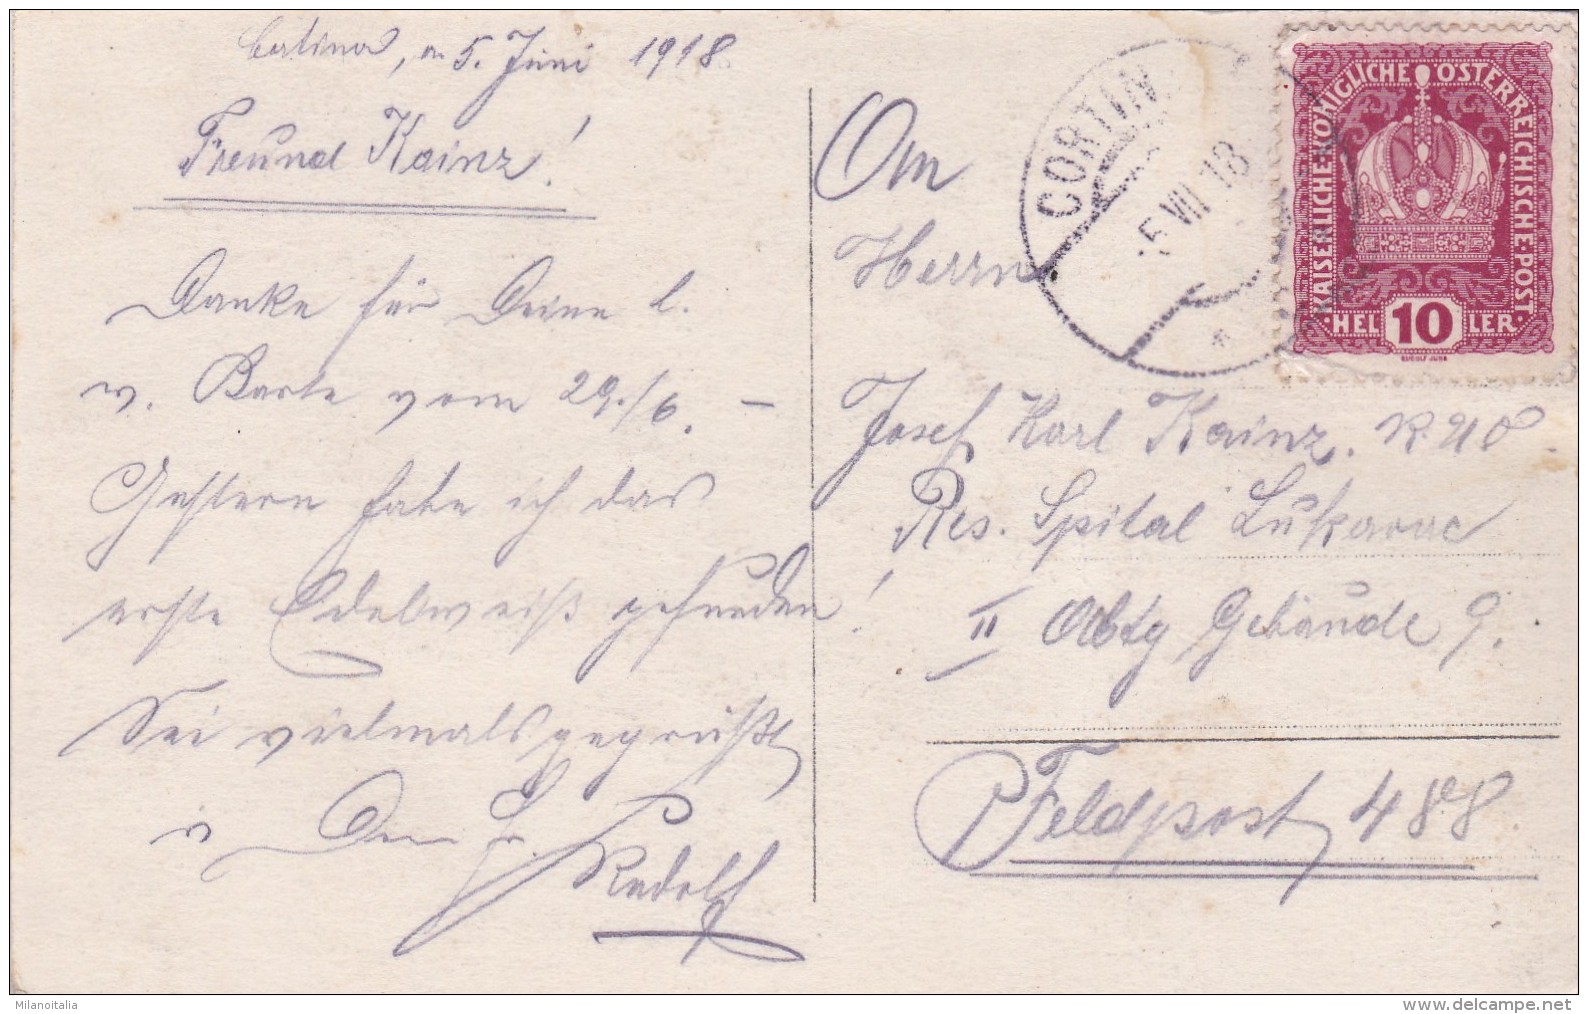 Cortina, am 5. Juni 1918
Freund Kainz!
Danke für Deine l.
w. Karte vom 29./6. –
Gestern habe ich das
erste Edelweiß gefunden!
Sei vielmals gegrüßt
v. Dein Fr.
Rudolf
An
Herrn
Josef Karl Kainz.
Res. Spital Lukavac
II Abtg Gebäude 9.
Feldpost 488
CORTIN
5 VII 18
KAISERLICHE KÖNIGLICHE ÖSTERREICHISCHE POST
HEL 10 LER
RUDOLF JUNK
Milanoitalia
delcampe.net